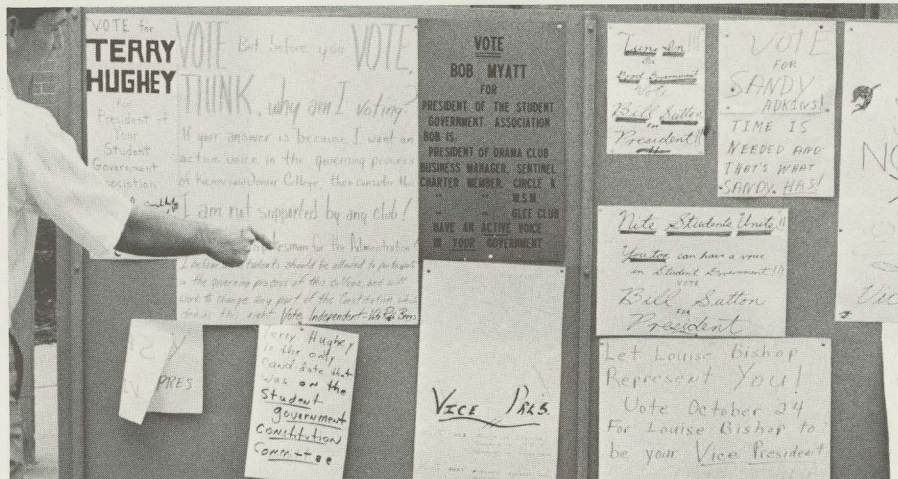 VOTE for
TERRY
HUGHEY
for
President of
Your
Student
Government
VOTE But, before you VOTE,
THINK, why am I voting?
If your answer is because I want an
active voice in the governing process
of Kennesaw Junior College, then consider this
I am not supported by any club!
for the Administration!
I believe students should be allowed to participate
in the governing process of this college, and will
work to change any part of the Constitution which
denies this right. Vote Independent-
VOTE
BOB MYATT
FOR
PRESIDENT OF THE STUDENT
GOVERNMENT ASSOCIATION
BOB IS:
PRESIDENT OF DRAMA CLUB
BUSINESS MANAGER, SENTINEL
CHARTER MEMBER, CIRCLE K
" " W.S.M
" " GLEE CLUB
HAVE AN ACTIVE VOICE
IN YOUR GOVERNMENT
Tune In!!!
Good Government
Vote
Bill Sutton
for
President!!
VOTE
FOR
SANDY
ADKINS!
TIME IS
NEEDED AND
THAT'S WHAT
SANDY HAS!
NO
Vic
Nite Students Unite!!!
You too can have a voice
in Student Government!!!
VOTE
Bill Sutton
FOR
President
PRES
Terry Hughey
is the only
Candidate that
was on the
Student
government
Constitution
Committee
VICE PRES.
Let Louise Bishop
Represent You!
Vote October 24
For Louise Bishop to
be your Vice President